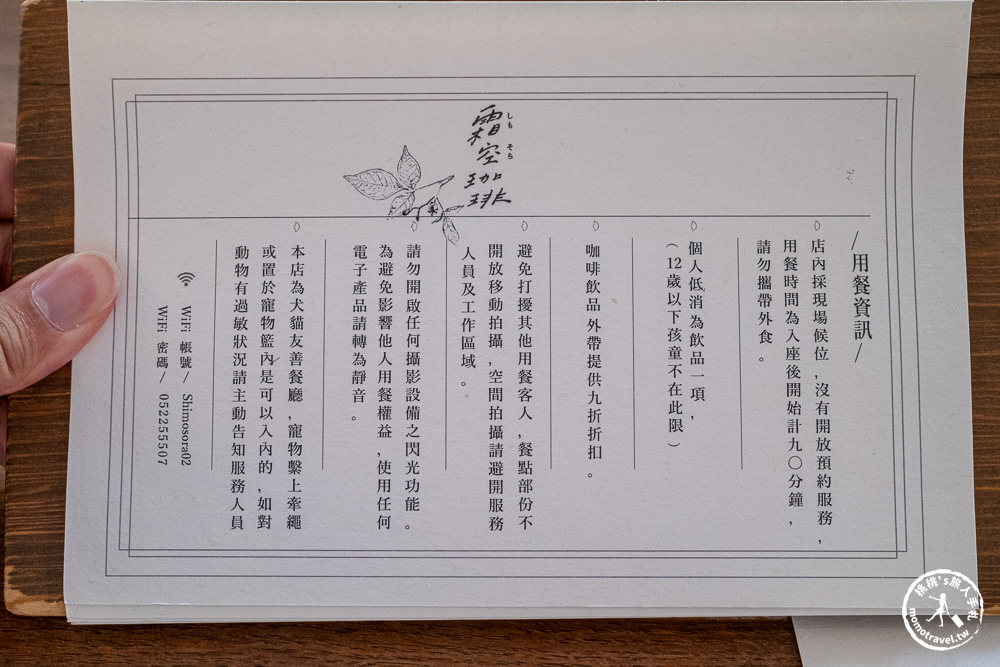 霜空珈琲
しも そら
/用餐資訊/
店內採現場候位,沒有開放預約服務,
用餐時間為入座後開始計九〇分鐘,
請勿攜帶外食。
個人低消為飲品一項,
(12歲以下孩童不在此限)
咖啡飲品外帶提供九折折扣。
避免打擾其他用餐客人,餐點部份不
開放移動拍攝,空間拍攝請避開服務
人員及工作區域。
請勿開啟任何攝影設備之閃光功能。
為避免影響他人用餐權益,使用任何
電子產品請轉為靜音。
本店為犬貓友善餐廳,寵物繫上牽繩
或置於寵物籃內是可以入內的,如對
動物有過敏狀況請主動告知服務人員
WiFi 帳號/ Shimosora02
WiFi 密碼/ 052255507
桃桃's旅人手札
momotravel.tw